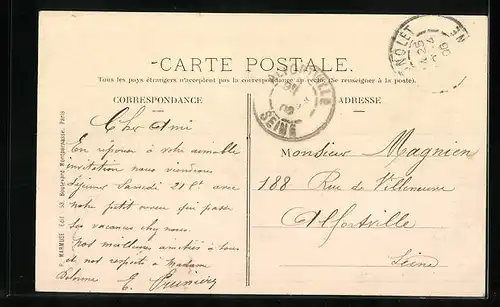 CARTE POSTALE.
Tous les pays étrangers n'acceptent pas la correspondance au recto. (Se renseigner à la poste.)
CORRESPONDANCE
ADRESSE
Cher Ami
En réponse à votre aimable
invitation nous viendrons
déjeuner Samedi 21 Ct avec
notre petit neveu qui passe
ses vacances chez nous.
Nos meilleures amitiés à tous
et nos respects à Madame
Delorme E.
Monsieur Magnien
188 Rue de Villeneuve
Alfortville
Seine
P. MARMUSE Edit 52, Boulevard Montparnasse, Paris
ALFORTVILLE
SEINE
NOLET